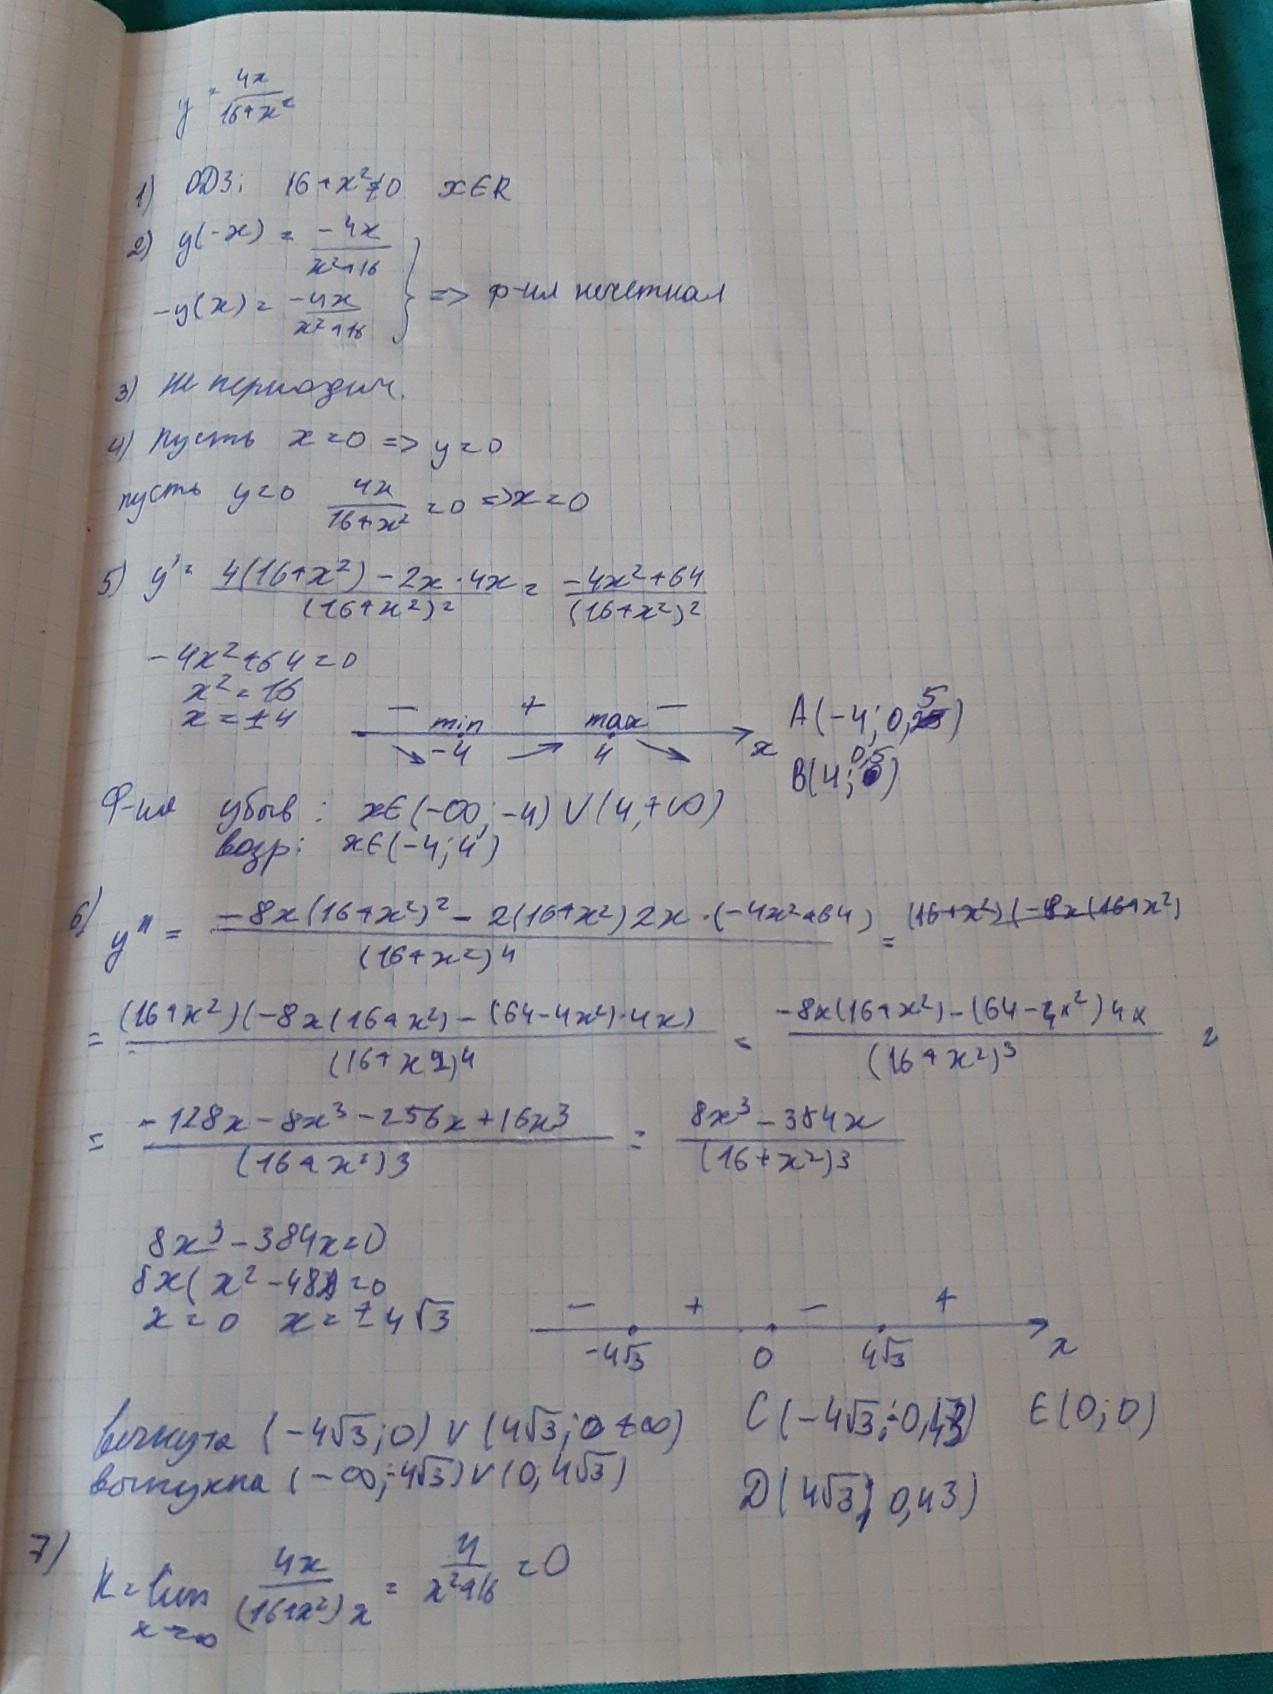 y = 4x/(16+x²)
1) ОДЗ: 16+x²≠0 x∈R
2) y(-x) = -4x/(x²+16)
-y(x) = -4x/(x²+16) } => ф-ия нечетная
3) Не периодич.
4) Пусть x=0 => y=0
пусть y=0 4x/(16+x²) =0 => x=0
5) y' = (4(16+x²)-2x·4x)/(16+x²)² = (-4x²+64)/(16+x²)²
-4x²+64=0
x²=16
x=±4
− min + max −
-4 4 x
A(-4; 0,5)
B(4; 0,5)
Ф-ия убыв: x∈(-∞; -4) ∪ (4, +∞)
возр: x∈(-4; 4)
6) y'' = (-8x(16+x²)² - 2(16+x²)2x·(-4x²+64))/(16+x²)⁴ = (16+x²)(-8x(16+x²)
= (16+x²)(-8x(16+x²)-(64-4x²)·4x)/(16+x²)⁴ = (-8x(16+x²)-(64-4x²)4x)/(16+x²)³ =
= (-128x-8x³-256x+16x³)/(16+x²)³ = (8x³-384x)/(16+x²)³
8x³-384x=0
8x(x²-48)=0
x=0 x=±4√3
− + − +
-4√3 0 4√3 x
вогнута (-4√3; 0) ∪ (4√3; +∞) C(-4√3; -0,43) E(0; 0)
выпукла (-∞; -4√3) ∪ (0, 4√3) D(4√3; 0,43)
7) K = lim x→∞ 4x/((16+x²)x) = 4/(x²+16) = 0